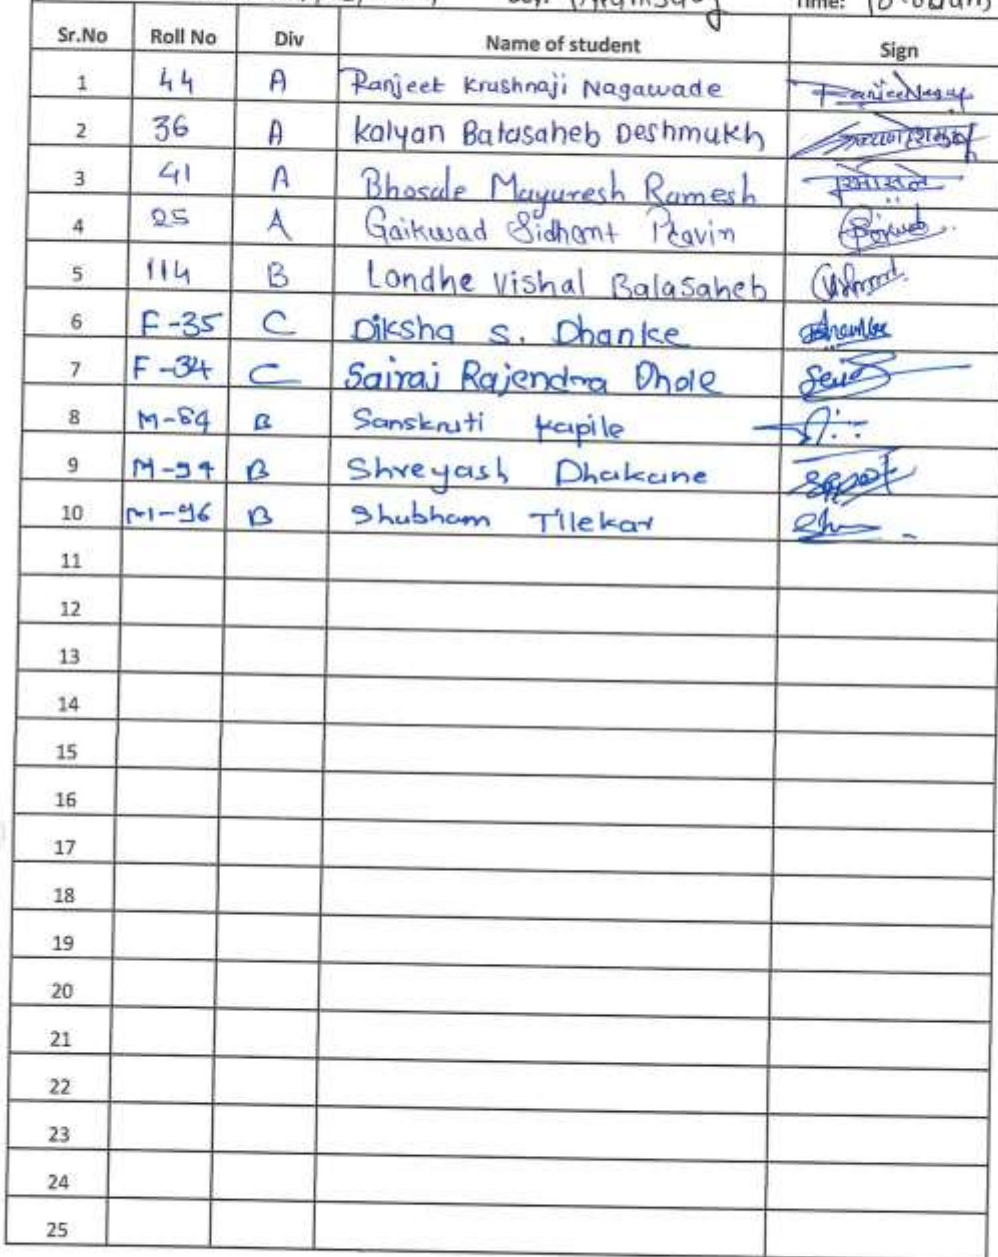 Time: 10:00am
Sr.No Roll No Div Name of student Sign
1 44 A Ranjeet Krushnaji Nagawade
2 36 A Kalyan Balasaheb Deshmukh
3 41 A Bhosale Mayuresh Ramesh
4 25 A Gaikwad Sidhant Pravin
5 114 B Londhe Vishal Balasaheb
6 F-35 C Diksha S. Dhanke
7 F-34 C Sairaj Rajendra Dhole
8 B Sanskruti Kapile
9 M-94 B Shreyash Dhakane
10 M-96 B Shubham Tilekar
11
12
13
14
15
16
17
18
19
20
21
22
23
24
25